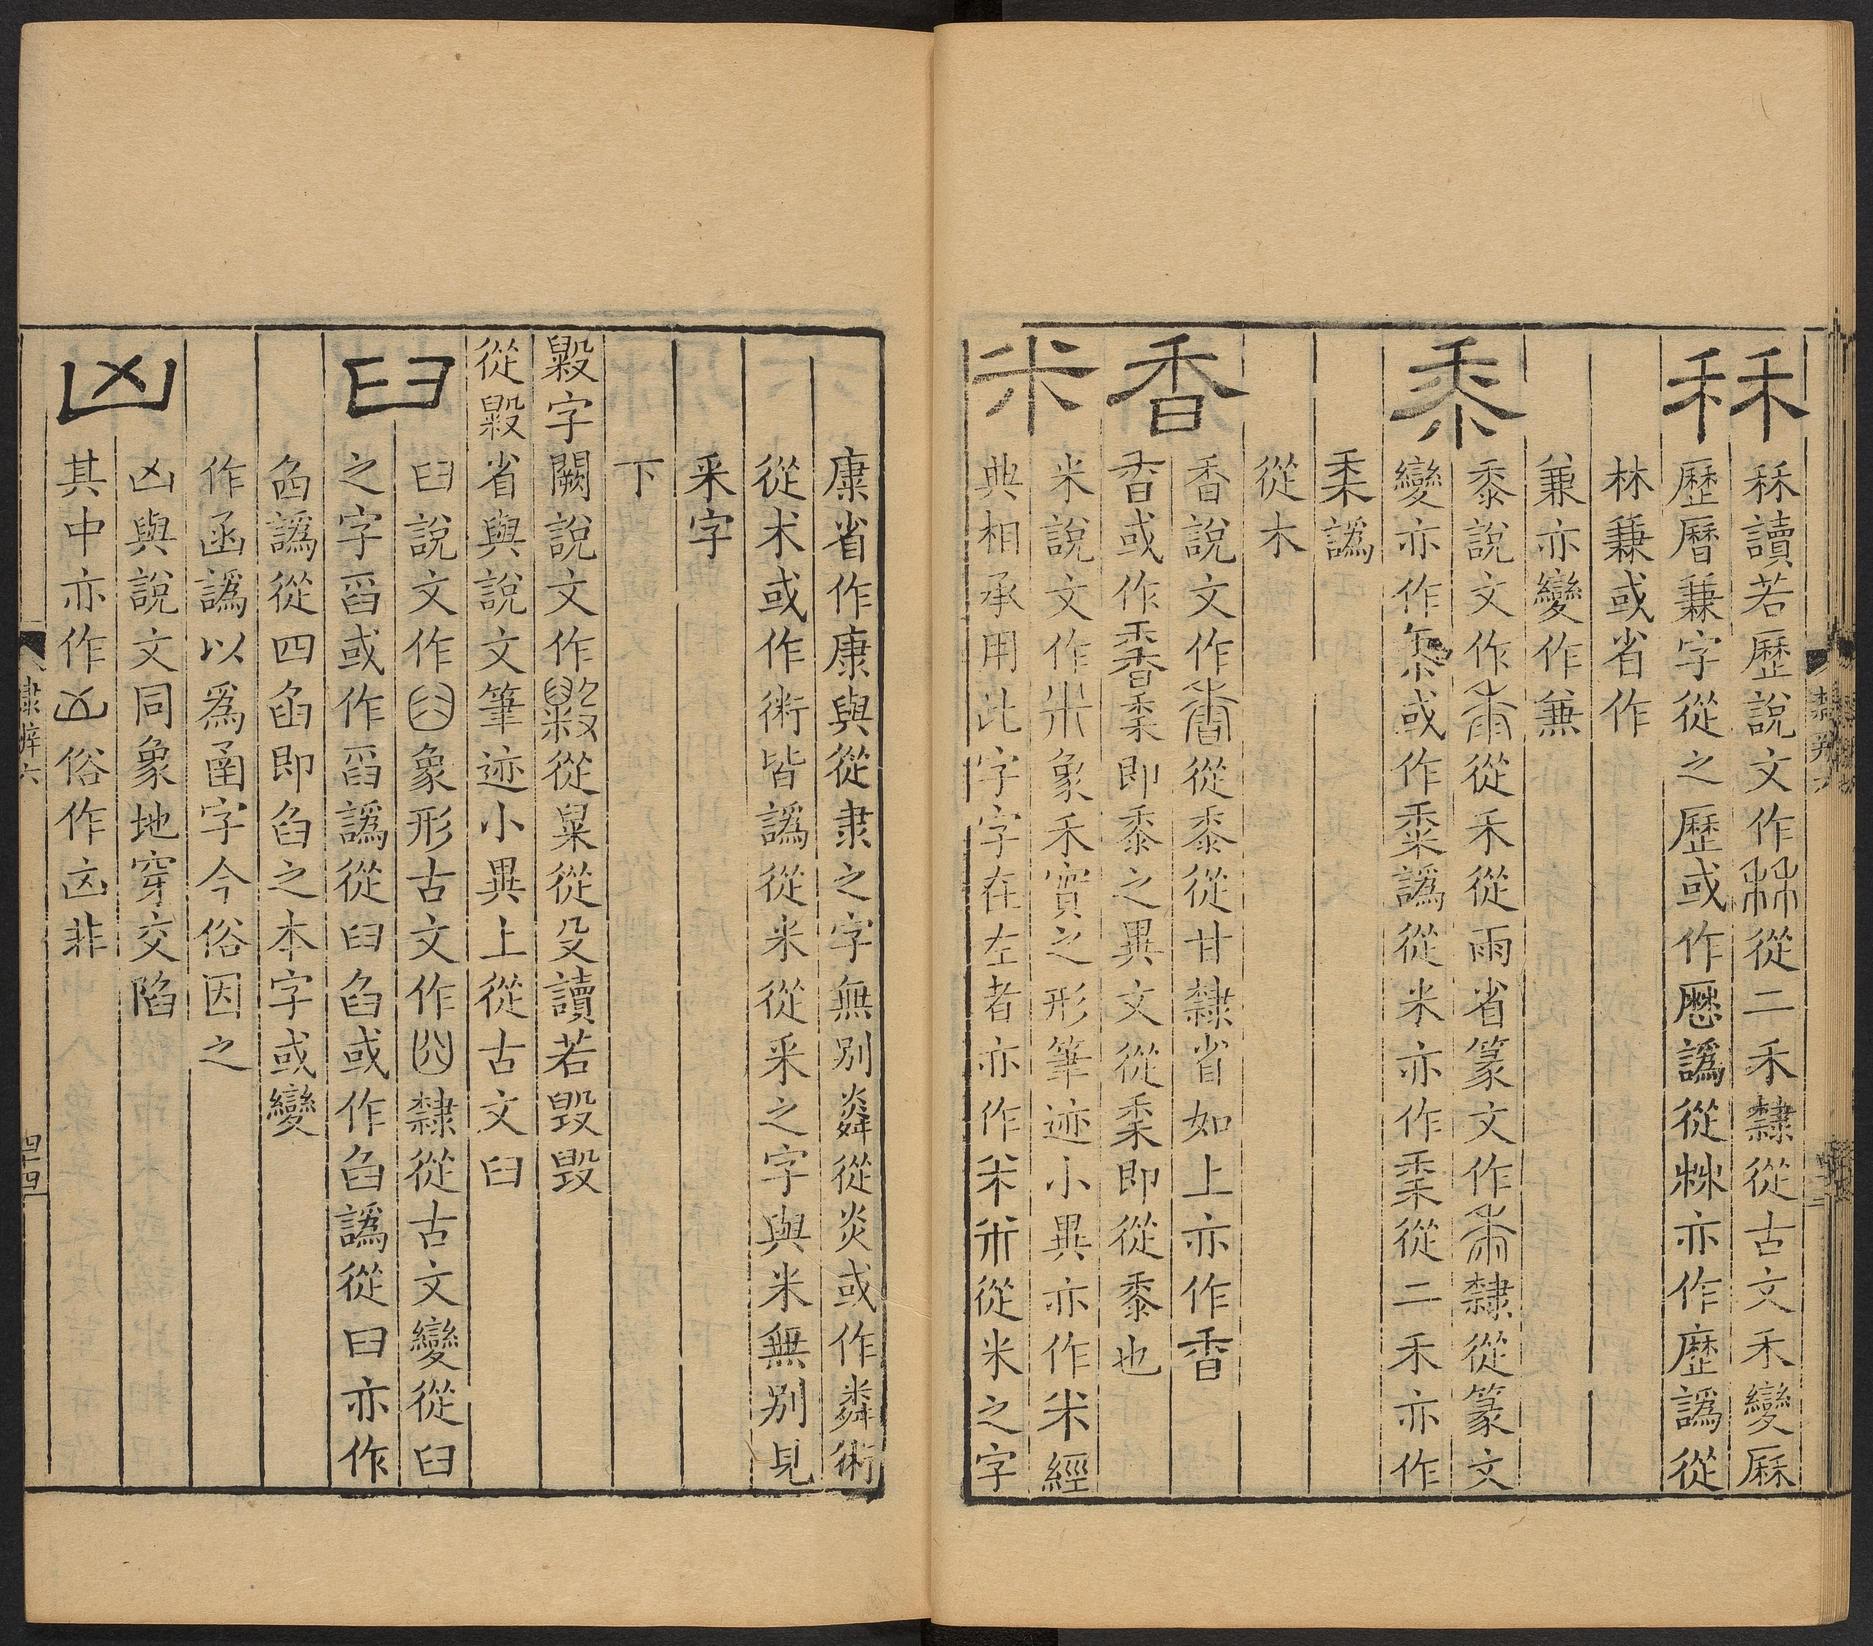 秝
秝讀若歷說文作從二禾隸從古文禾變厤
歷曆𥡝字從之歷或作懕譌從𣏟亦作歴譌從
林𥡝或省作
兼亦變作𠔥
黍
黍說文作從禾從雨省篆文作隸從篆文
變亦作或作譌從米亦作𥝩從二禾亦作
𥝩譌
從木
香
香說文作從黍從甘隸省如上亦作㿝
㫖或作即黍之異文從𥝩即從黍也
米
米說文作象禾實之形筆迹小異亦作米經
典相承用此字字在左者亦作從米之字
康省作康與從隶之字無別粦從炎或作粦術
從术或作術皆譌從米從釆之字與米無別見
釆字
下
毇字闕說文作從臼米從殳讀若毀毀
從毇省與說文筆迹小異上從古文臼
臼
臼說文作象形古文作隸從古文變從臼
之字舀或作舀譌從臼臽或作臽譌從曰亦作
臽譌從四臽即臽之本字或變
作函譌以爲圅字今俗因之
凶
凶與說文同象地穿交陷
其中亦作凶俗作㐫非
隸辨六
四十四